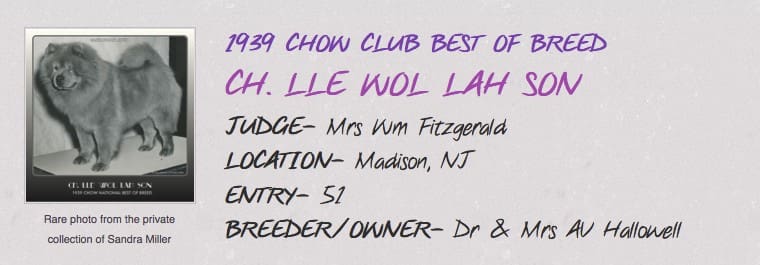 CH. LLE WOL LAH SON
1939 CHOW NATIONAL BEST OF BREED
Rare photo from the private
collection of Sandra Miller
1939 CHOW CLUB BEST OF BREED
CH. LLE WOL LAH SON
JUDGE- Mrs Wm Fitzgerald
LOCATION- Madison, NJ
ENTRY- 51
BREEDER/OWNER- Dr & Mrs AV Hallowell